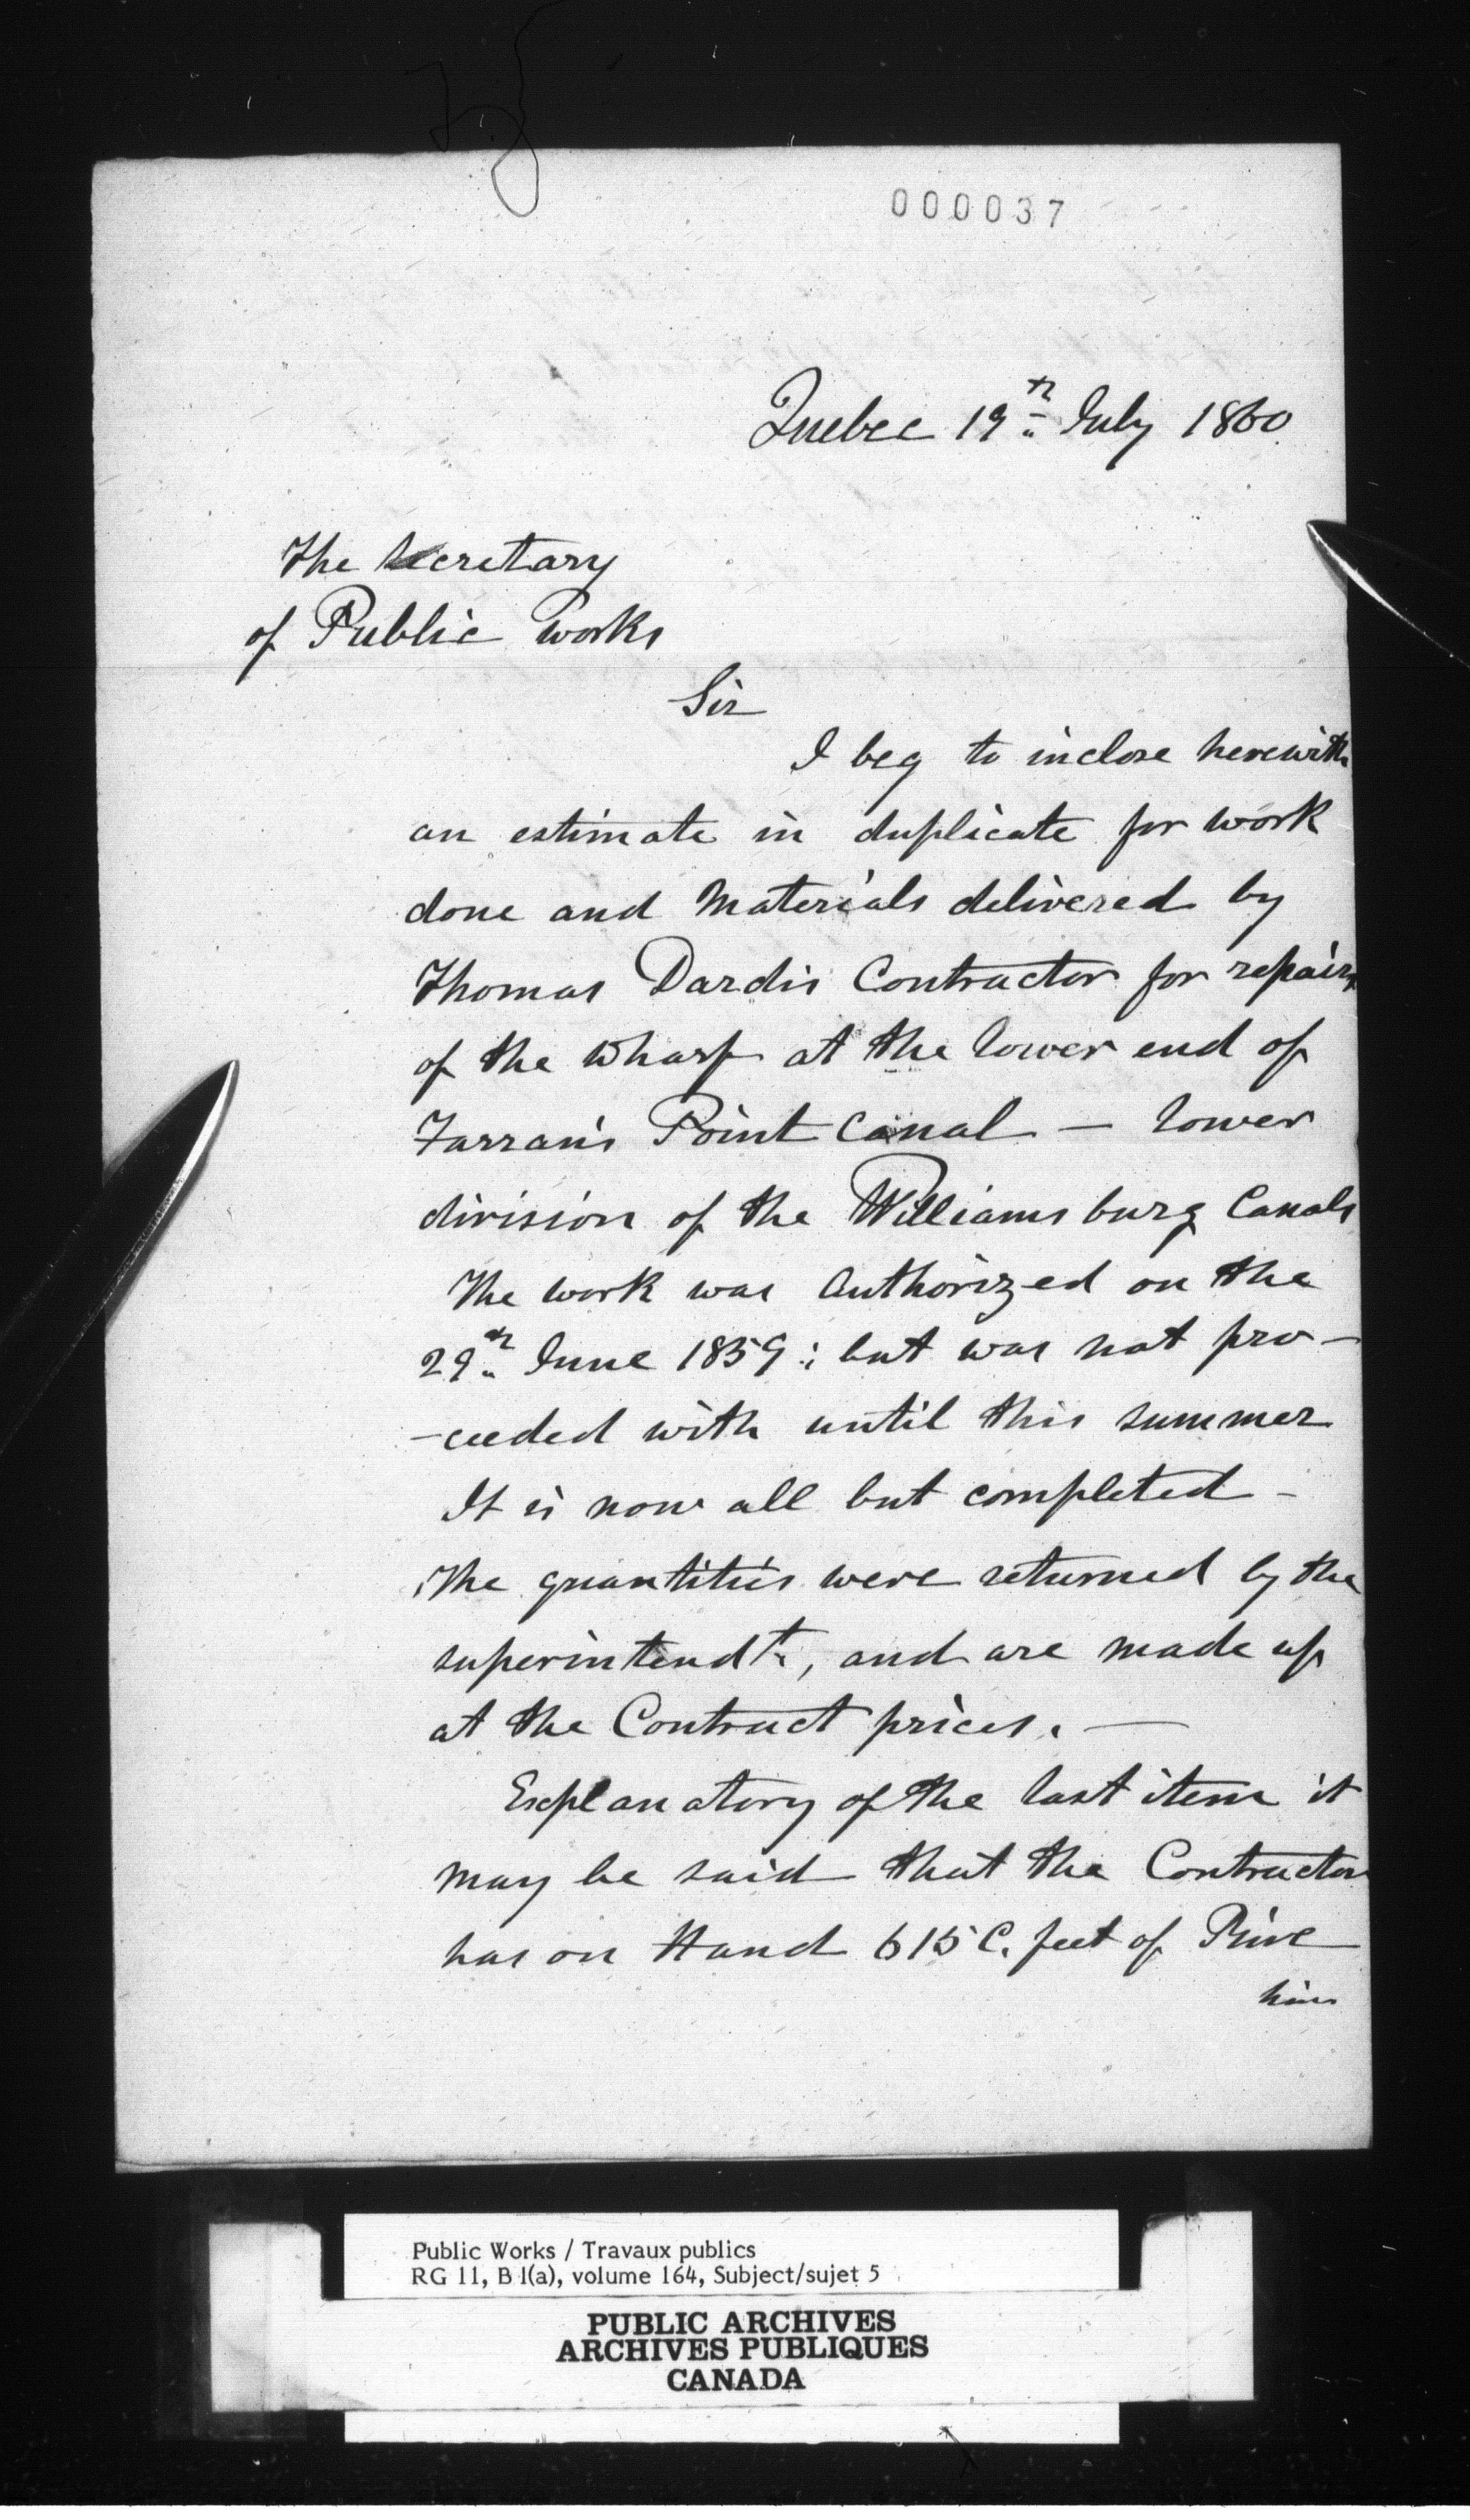 000037
Quebec 19th July 1860
The Secretary
of Public Works
Sir
I beg to inclose herewith
an estimate in duplicate for work
done and Materials delivered by
Thomas Dardis Contractor for repairs
of the Wharf at the lower end of
Farran's Point Canal — lower
division of the Williamsburg Canals
The work was Authorized on the
29th June 1859; but was not pro-
-ceeded with until this summer
It is now all but completed -
The quantities were returned by the
superintendt, and are made up
at the Contract prices. —
Explanatory of the last item it
may be said that the Contractor
has on Hand 615 C. feet of Pine
Public Works / Travaux publics
RG 11, B 1(a), volume 164, Subject/sujet 5
PUBLIC ARCHIVES
ARCHIVES PUBLIQUES
CANADA